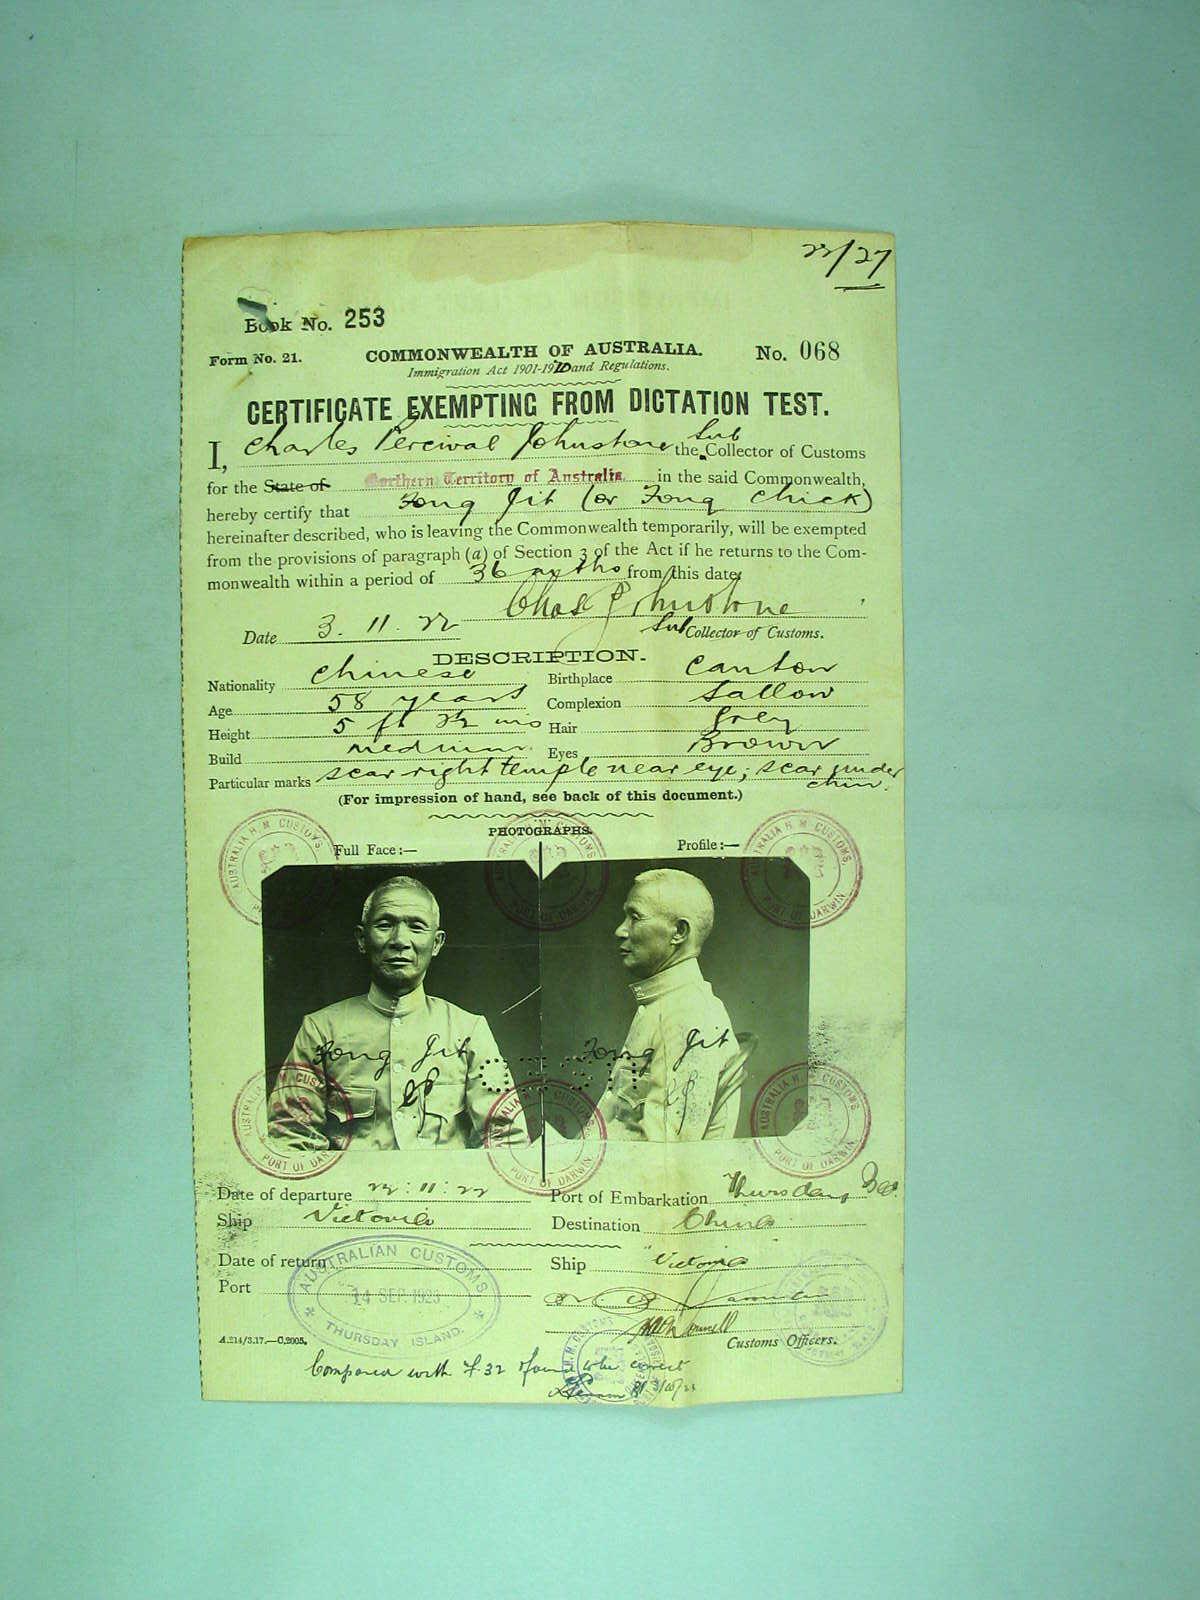 22/27
Book No. 253
Form No. 21.
COMMONWEALTH OF AUSTRALIA.
No. 068
Immigration Act 1901-1920 and Regulations.
CERTIFICATE EXEMPTING FROM DICTATION TEST.
I, Charles Percival Johnstone the Sub Collector of Customs
for the State of Northern Territory of Australia. in the said Commonwealth,
hereby certify that Fong Jit (or Fong Chick)
hereinafter described, who is leaving the Commonwealth temporarily, will be exempted
from the provisions of paragraph (a) of Section 3 of the Act if he returns to the Com-
monwealth within a period of 36 mths from this date.
Chas P Johnstone
Date 3. 11. 22
Sub Collector of Customs.
DESCRIPTION.
Nationality Chinese
Birthplace Canton
Age 58 years
Complexion Sallow
Height 5 ft 2½ ins
Hair Grey
Build medium
Eyes Brown
Particular marks scar right temple near eye; scar under
chin.
(For impression of hand, see back of this document.)
PHOTOGRAPHS.
Full Face:—
Profile:—
AUSTRALIA H. M. CUSTOMS.
PORT OF DARWIN
AUSTRALIA H. M. CUSTOMS.
PORT OF DARWIN
AUSTRALIA H. M. CUSTOMS.
PORT OF DARWIN
Fong Jit
Fong Jit
AUSTRALIA H. M. CUSTOMS
PORT OF DARWIN
AUSTRALIA H. M. CUSTOMS
PORT OF DARWIN
AUSTRALIA H. M. CUSTOMS.
PORT OF DARWIN
Date of departure 22 : 11 : 22
Port of Embarkation Thursday Isd.
Ship Victoria
Destination China
Date of return
Ship "Victoria"
Port
AUSTRALIAN CUSTOMS
14 SEP 1923
THURSDAY ISLAND.
A.214/3.17.—C.2005.
Customs Officers.
Compared with F.32 & found to be correct
3/10/23